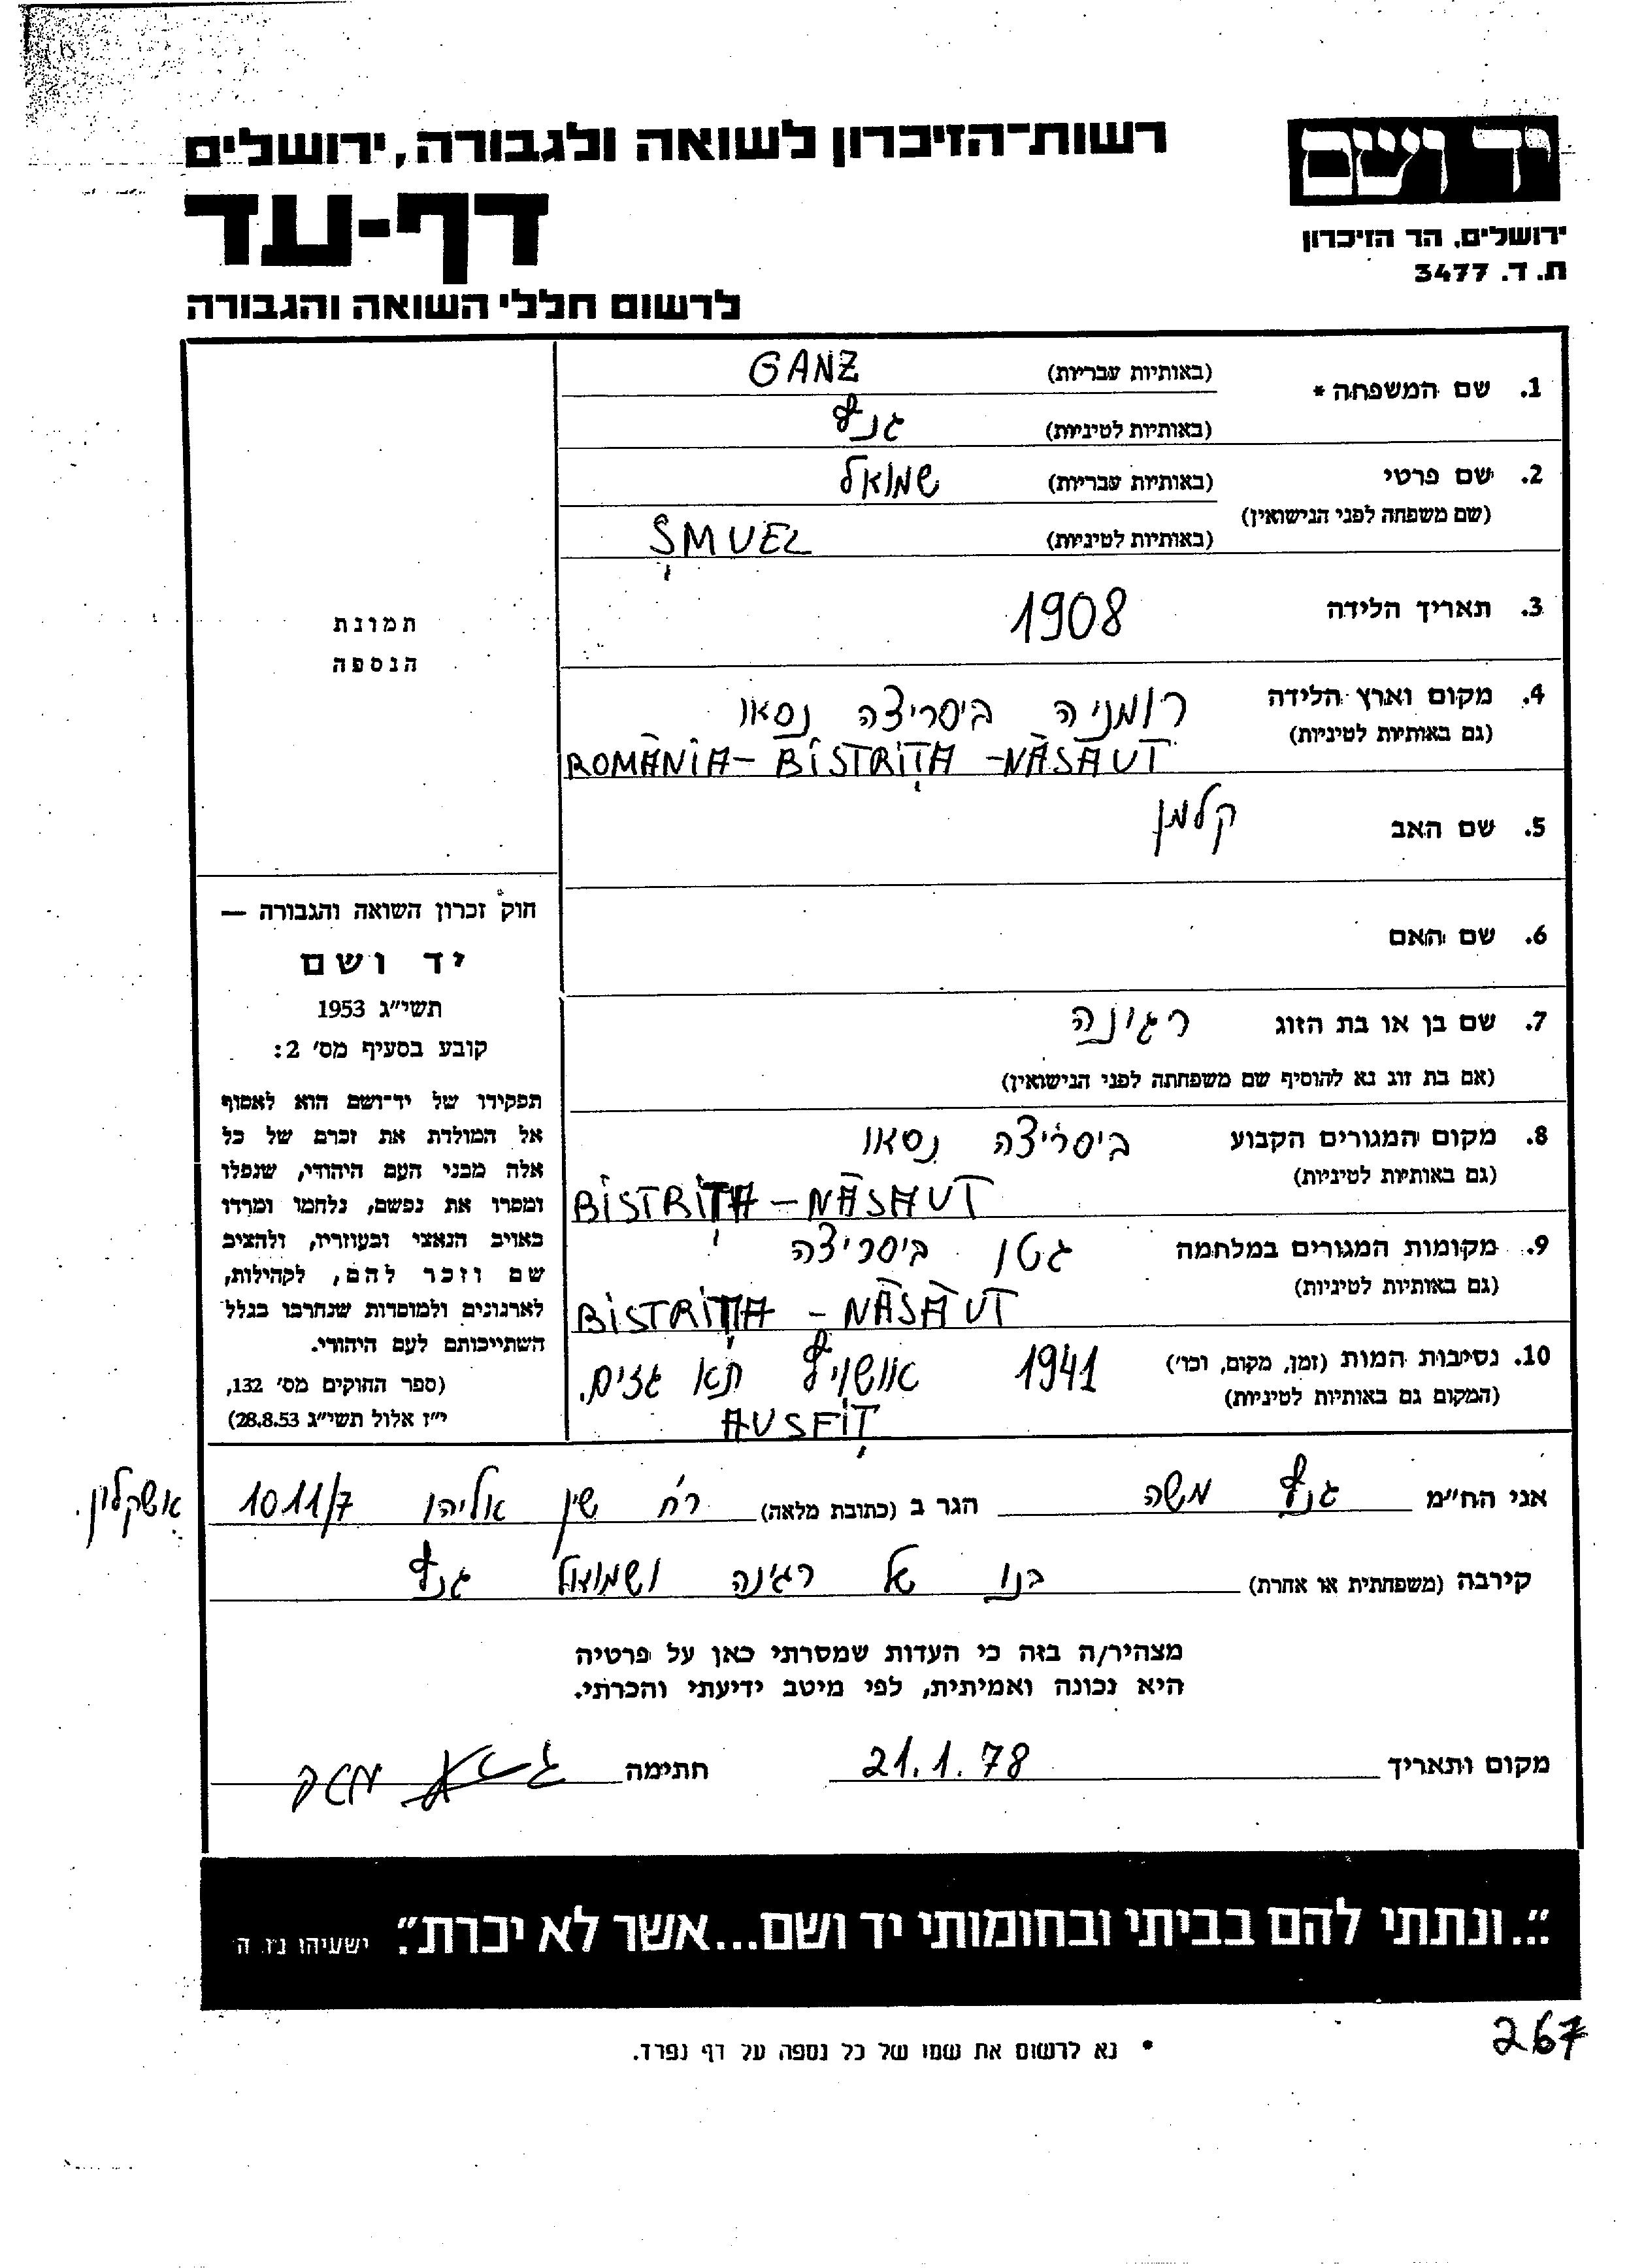 יד ושם
ירושלים, הר הזיכרון
ת. ד. 3477
רשות-הזיכרון לשואה ולגבורה, ירושלים
דף-עד
לרשום חללי השואה והגבורה
1. שם המשפחה * (באותיות עבריות) GANZ
(באותיות לטיניות) גנץ
2. שם פרטי (באותיות עבריות) שמואל
(שם משפחה לפני הנישואין)
(באותיות לטיניות) ŞMUEL
3. תאריך הלידה 1908
4. מקום וארץ הלידה רומניה ביסריצה נסאו
(גם באותיות לטיניות)
ROMÂNIA - BISTRIȚA - NĂSAUT
5. שם האב קלמן
6. שם האם
7. שם בן או בת הזוג רגינה
(אם בת זוג נא להוסיף שם משפחתה לפני הנישואין)
8. מקום המגורים הקבוע ביסריצה נסאו
(גם באותיות לטיניות)
BISTRIȚA - NĂSAUT
9. מקומות המגורים במלחמה גטו ביסריצה
(גם באותיות לטיניות)
BISTRIȚA - NĂSĂUT
10. נסיבות המות (זמן, מקום, וכו') 1941 אושויץ תא גזים.
(המקום גם באותיות לטיניות)
AUSFIȚ
תמונת
הנספה
חוק זכרון השואה והגבורה —
יד ושם
תשי"ג 1953
קובע בסעיף מס' 2:
תפקידו של יד-ושם הוא לאסוף
אל המולדת את זכרם של כל
אלה מבני העם היהודי, שנפלו
ומסרו את נפשם, נלחמו ומרדו
באויב הנאצי ובעוזריו, ולהציב
שם וזכר להם, לקהילות,
לארגונים ולמוסדות שנחרבו בגלל
השתייכותם לעם היהודי.
(ספר החוקים מס' 132,
י"ז אלול תשי"ג 28.8.53)
אני הח"מ גנץ משה הגר ב (כתובת מלאה) רח שין אליהו 1011/7 אשקלון.
קירבה (משפחתית או אחרת) בנו של רגינה ושמואל גנץ
מצהיר/ה בזה כי העדות שמסרתי כאן על פרטיה
היא נכונה ואמיתית, לפי מיטב ידיעתי והכרתי.
מקום ותאריך 21.1.78 חתימה
"...ונתתי להם בביתי ובחומותי יד ושם...אשר לא יכרת". ישעיהו נו. ה
* נא לרשום את שמו של כל נספה על דף נפרד.
267